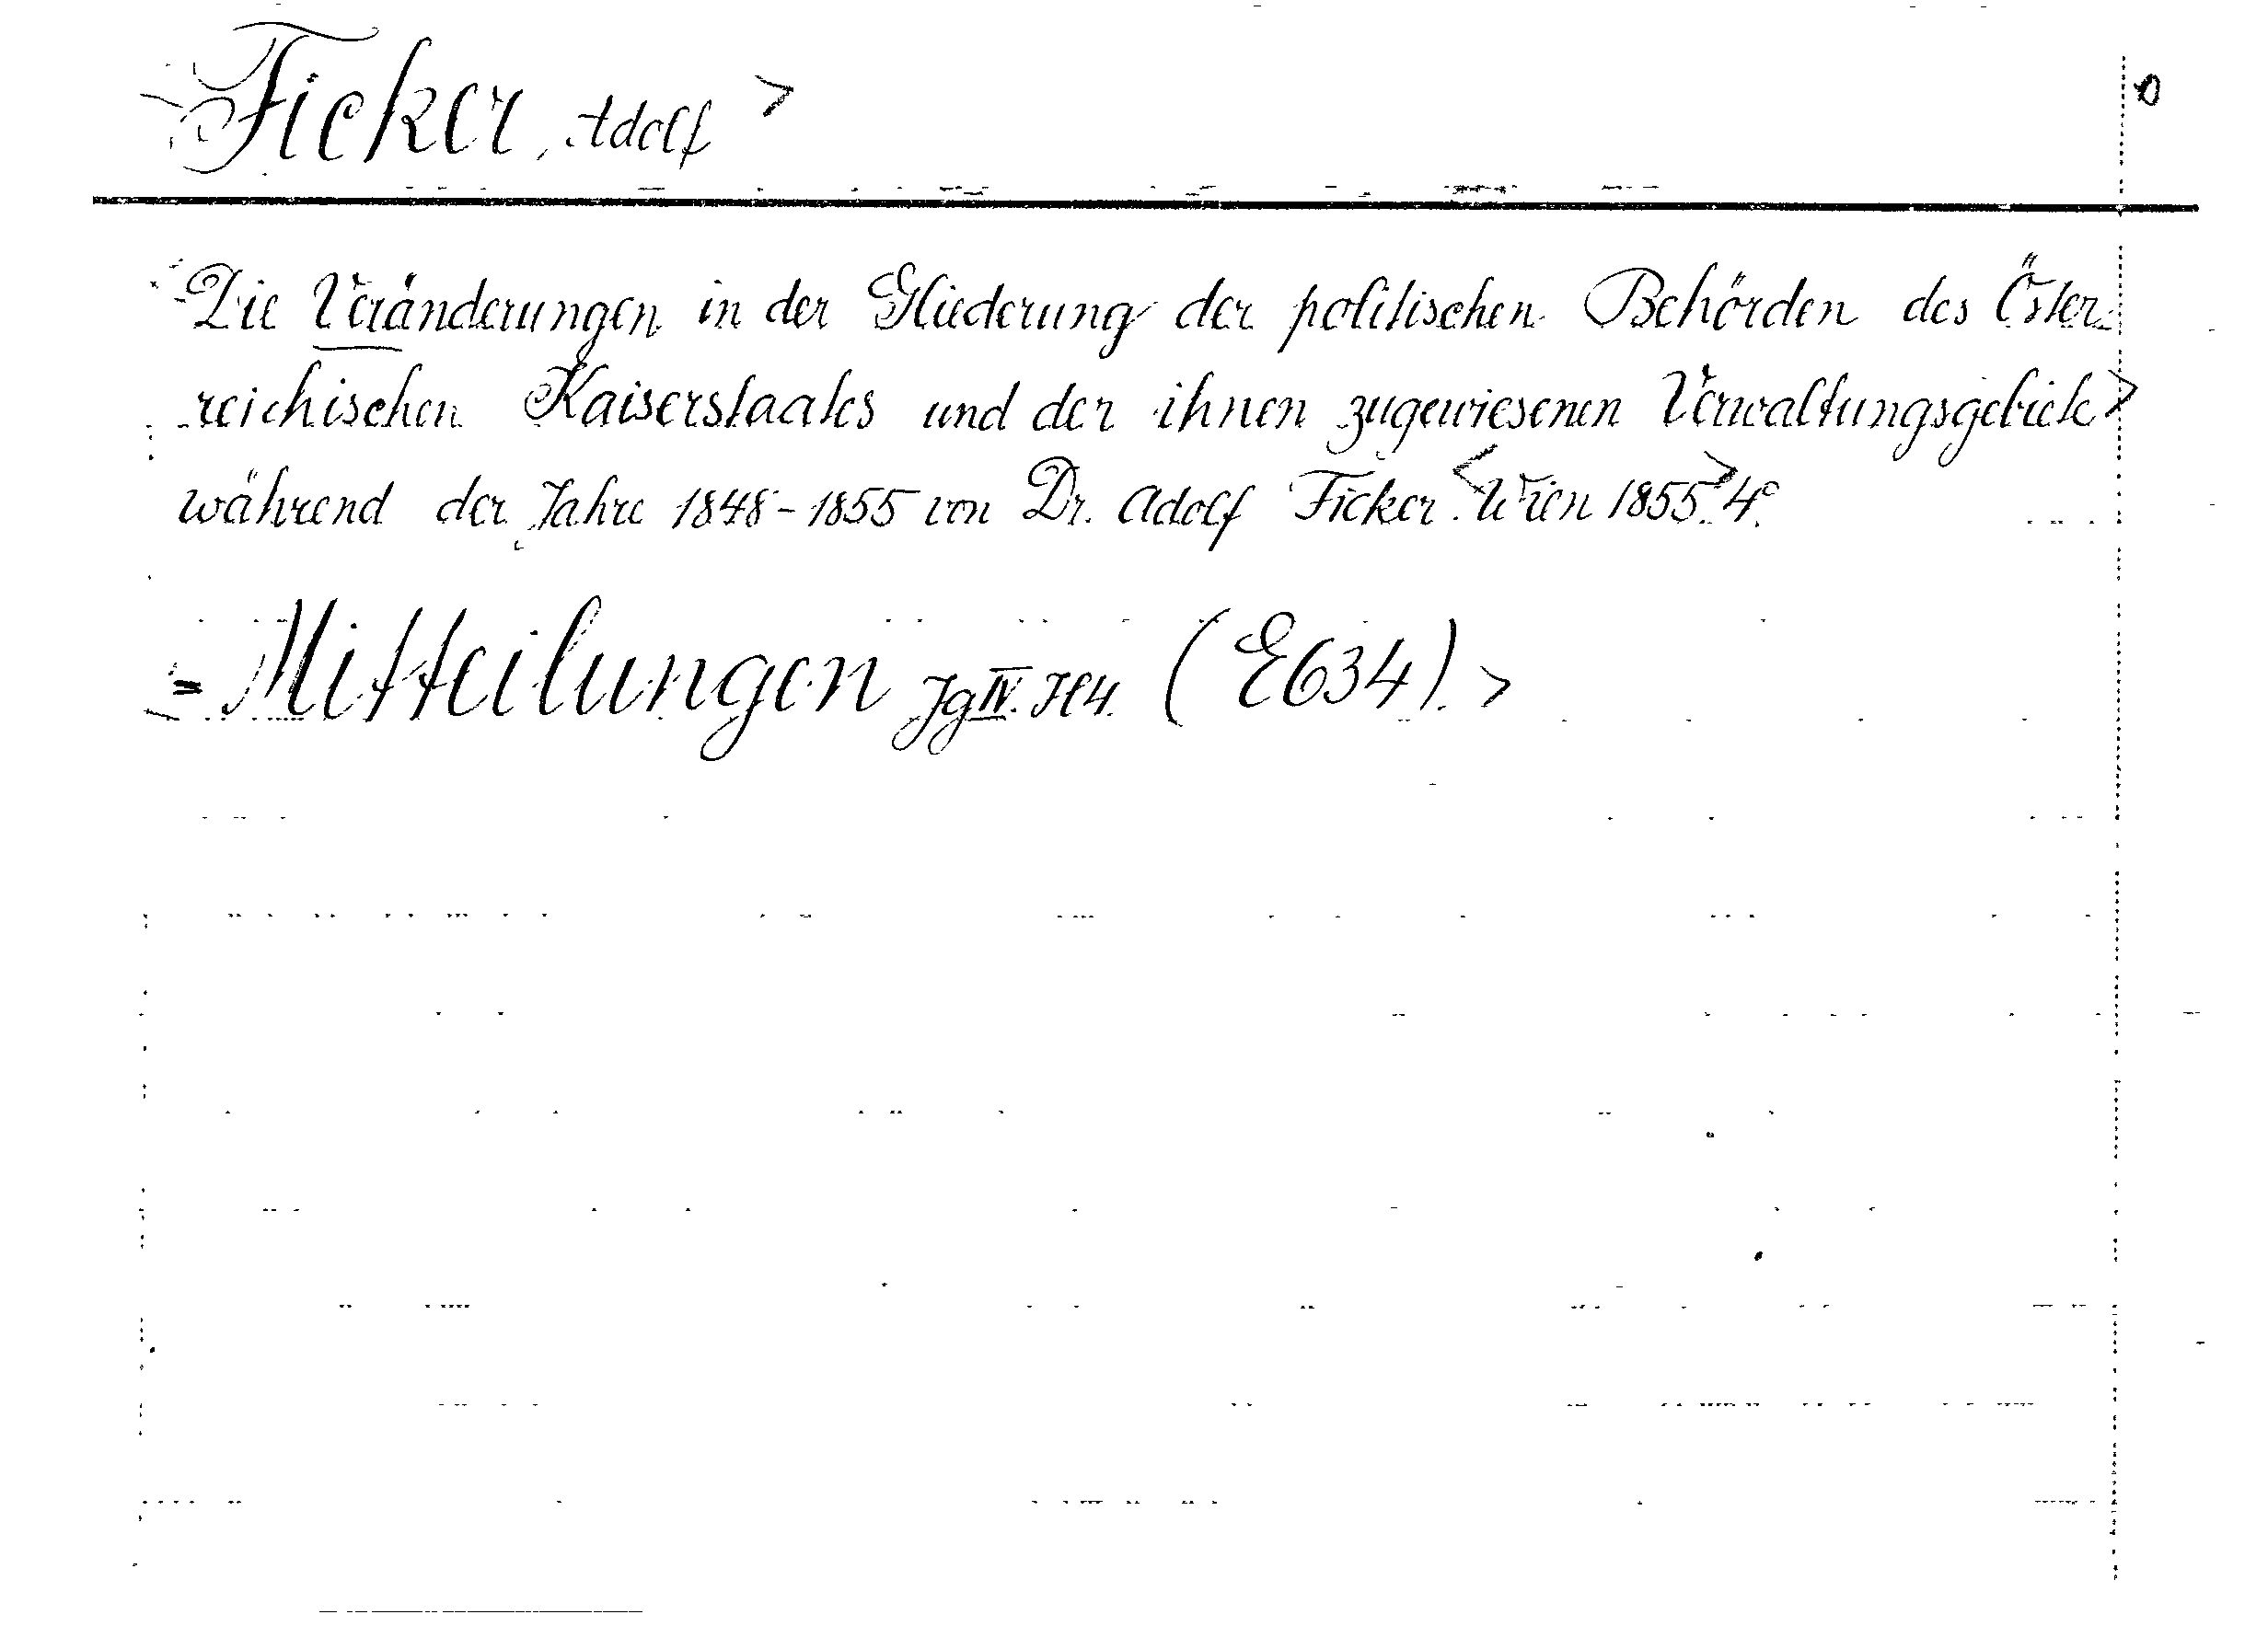 <Ficker, Adolf>
Die Veränderungen in der Gliederung der politischen Behörden des Öster-
reichischen Kaiserstaates und der ihnen zugewiesenen Verwaltungsgebiete>
während der Jahre 1848-1855 von Dr. Adolf Ficker. <Wien 1855.> 4°.
= Mitteilungen Jg IV. H 4. (E634). >